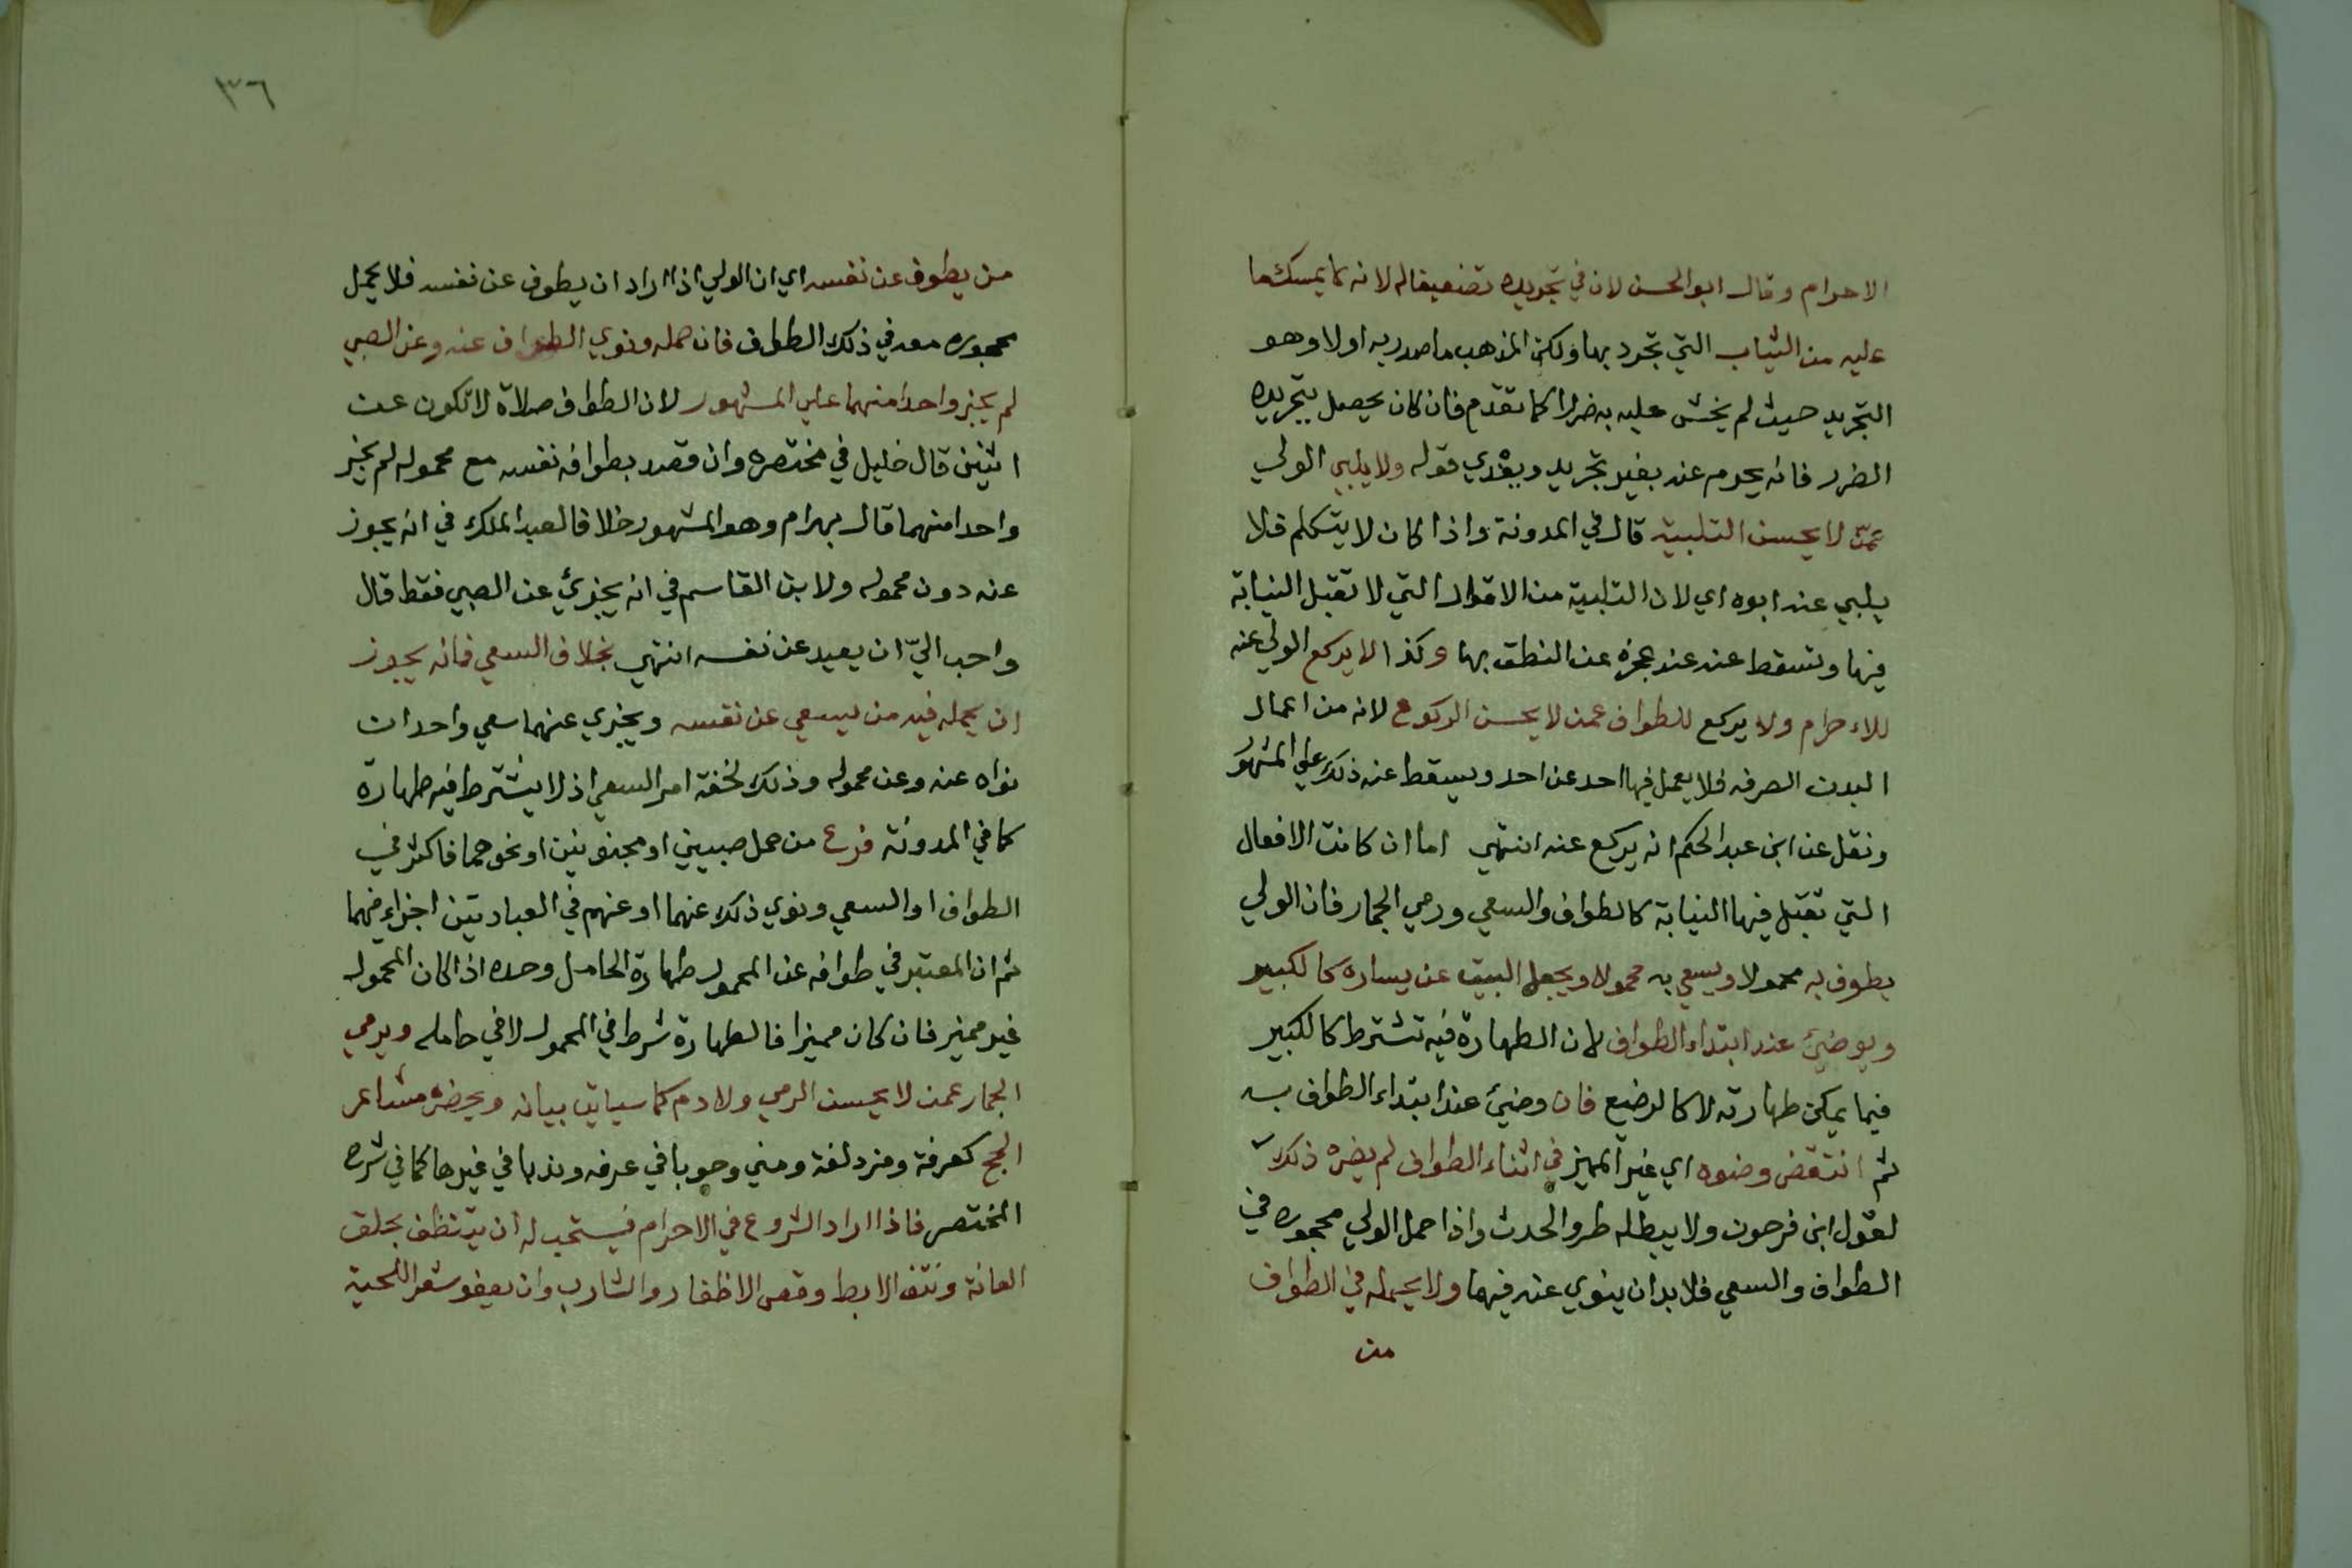 الاحرام وقال ابو الحسن لان في تجريده تضعيفا له لانه كما يمسك ما
عليه من الثياب التي تجرد بها ولكن المذهب ما صدر به اولا وهو
التجريد حيث لم يخش عليه به ضررا كما تقدم فان كان يحصل بتجريده
الضرر فانه يحرم عنه بغير تجريد ويفدي قوله ولا يلبي الولي
عمن لا يحسن التلبية قال في المدونة واذا كان لا يتكلم فلا
يلبي عنه ابوه اي لان التلبية من الاقوال التي لا تقبل النيابة
فيها وتسقط عنه عند عجزه عن النطق بها وكذا لا يركع الولي عنه
للاحرام ولا يركع للطواف عمن لا يحسن الركوع لانه من اعمال
البدن الصرفه فلا يعمل فيها احد عن احد ويسقط عنه ذلك علي المشهور
ونقل عن ابن عبد الحكم انه يركع عنه انتهي اما ان كانت الافعال
التي تقبل فيها النيابة كالطواف والسعي ورمي الجمار فان الولي
يطوف به محمولا ويسعي به محمولا ويجعل البيت عن يساره كالكبير
ويوضئ عند ابتداء الطواف لان الطهارة فيه تشترط كالكبير
فيما يمكن طهارته لا كالرضيع فان وضئ عند ابتداء الطواف به
ثم انتقض وضوه اي غير المميز في اثناء الطواف لم يضره ذلك
لقول ابن فرحون ولا يبطله طرو الحدث واذا حمل الولي محجوره في
الطواف والسعي فلا بد ان ينوي عنه فيهما ولا يحمله في الطواف
من
٣٦
من يطوف عن نفسه اي ان الولي اذا اراد ان يطوف عن نفسه فلا يحمل
محجوره معه في ذلك الطواف فان حمله ونوي الطواف عنه وعن الصبي
لم يجز واحدا منهما علي المشهور لان الطواف صلاة لا تكون عن
اثنين قال خليل في مختصره وان قصد بطوافه نفسه مع محموله لم يجز
واحدا منهما قال بهرام وهو المشهور خلافا لعبد الملك في انه يجوز
عنه دون محموله ولابن القاسم في انه يجزئ عن الصبي فقط قال
واحب اليّ ان يعيد عن نفسه انتهي بخلاف السعي فانه يجوز
ان يحمله فيه من يسعي عن نفسه ويجزي عنهما سعي واحد ان
نواه عنه وعن محموله وذلك لخفة امر السعي اذ لا يشترط فيه طهارة
كما في المدونة فرع من حمل صبيين او مجنونين او نحوهما فاكثر في
الطواف او السعي ونوي ذلك عنهما او عنهم في العبادتين اجزاء فيهما
ثم ان المعتبر في طوافه عن المحمول طهارة الحامل وحده اذا كان المحمول
غير مميز فان كان مميزا فالطهارة شرط في المحمول لا في حامله ويرمي
الجمار عمن لا يحسن الرمي ولا دم كما سياتي بيانه ويحضره مشاعر
الحج كعرفة ومزدلفة ومني وجوبا في عرفه وندبا في غيرها كما في شرح
المختصر فاذا اراد الشروع في الاحرام فيستحب له ان يتنظف بحلق
العانة ونتف الابط وقص الاظفار والشارب وان يعفو شعر اللحية